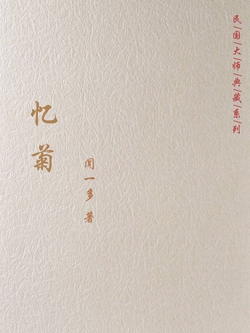 民/国/大/师/典/藏/系/列
忆菊
闻一多 著